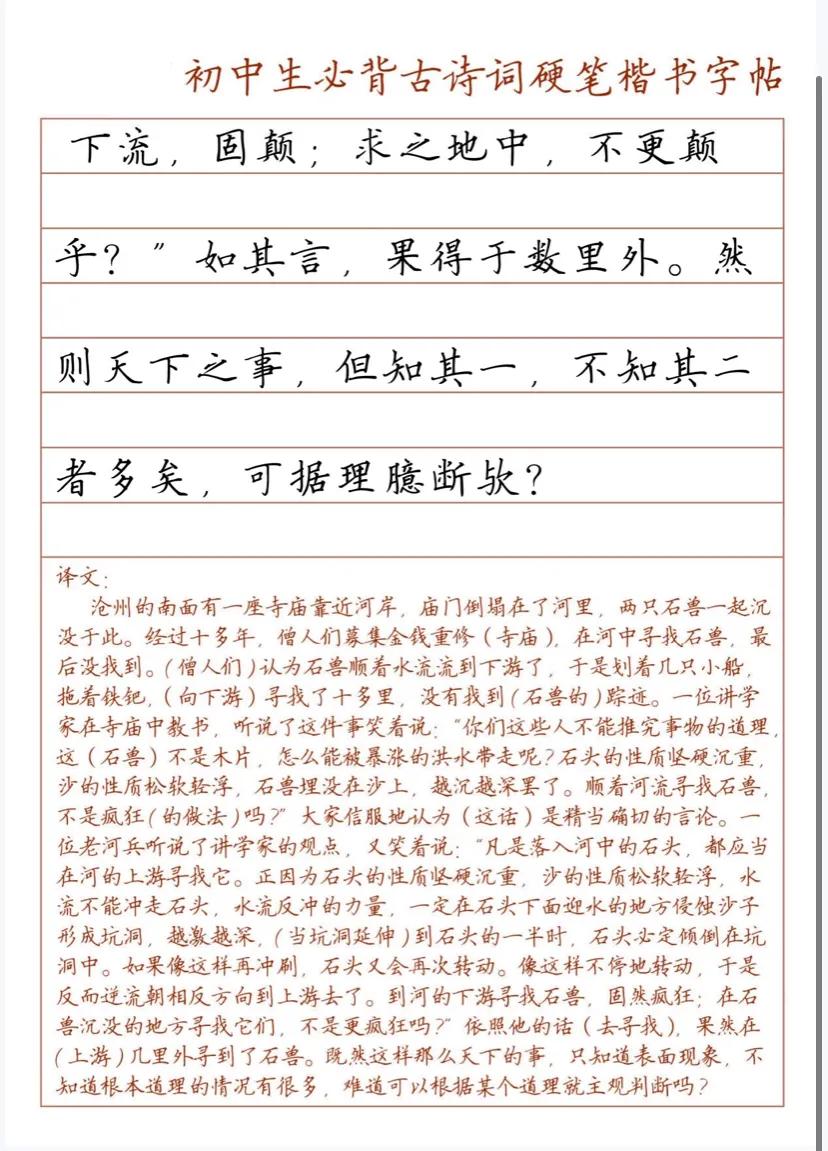 初中生必背古诗词硬笔楷书字帖
下流，固颠；求之地中，不更颠
乎？”如其言，果得于数里外。然
则天下之事，但知其一，不知其二
者多矣，可据理臆断欤？
译文：
沧州的南面有一座寺庙靠近河岸，庙门倒塌在了河里，两只石兽一起沉
没于此。经过十多年，僧人们募集金钱重修（寺庙），在河中寻找石兽，最
后没找到。（僧人们）认为石兽顺着水流流到下游了，于是划着几只小船，
拖着铁钯，（向下游）寻找了十多里，没有找到（石兽的）踪迹。一位讲学
家在寺庙中教书，听说了这件事笑着说：“你们这些人不能推究事物的道理，
这（石兽）不是木片，怎么能被暴涨的洪水带走呢？石头的性质坚硬沉重，
沙的性质松软轻浮，石兽埋没在沙上，越沉越深罢了。顺着河流寻找石兽，
不是疯狂（的做法）吗？”大家信服地认为（这话）是精当确切的言论。一
位老河兵听说了讲学家的观点，又笑着说：“凡是落入河中的石头，都应当
在河的上游寻找它。正因为石头的性质坚硬沉重，沙的性质松软轻浮，水
流不能冲走石头，水流反冲的力量，一定在石头下面迎水的地方侵蚀沙子
形成坑洞，越激越深，（当坑洞延伸）到石头的一半时，石头必定倾倒在坑
洞中。如果像这样再冲刷，石头又会再次转动。像这样不停地转动，于是
反而逆流朝相反方向到上游去了。到河的下游寻找石兽，固然疯狂；在石
兽沉没的地方寻找它们，不是更疯狂吗？”依照他的话（去寻找），果然在
（上游）几里外寻到了石兽。既然这样那么天下的事，只知道表面现象，不
知道根本道理的情况有很多，难道可以根据某个道理就主观判断吗？